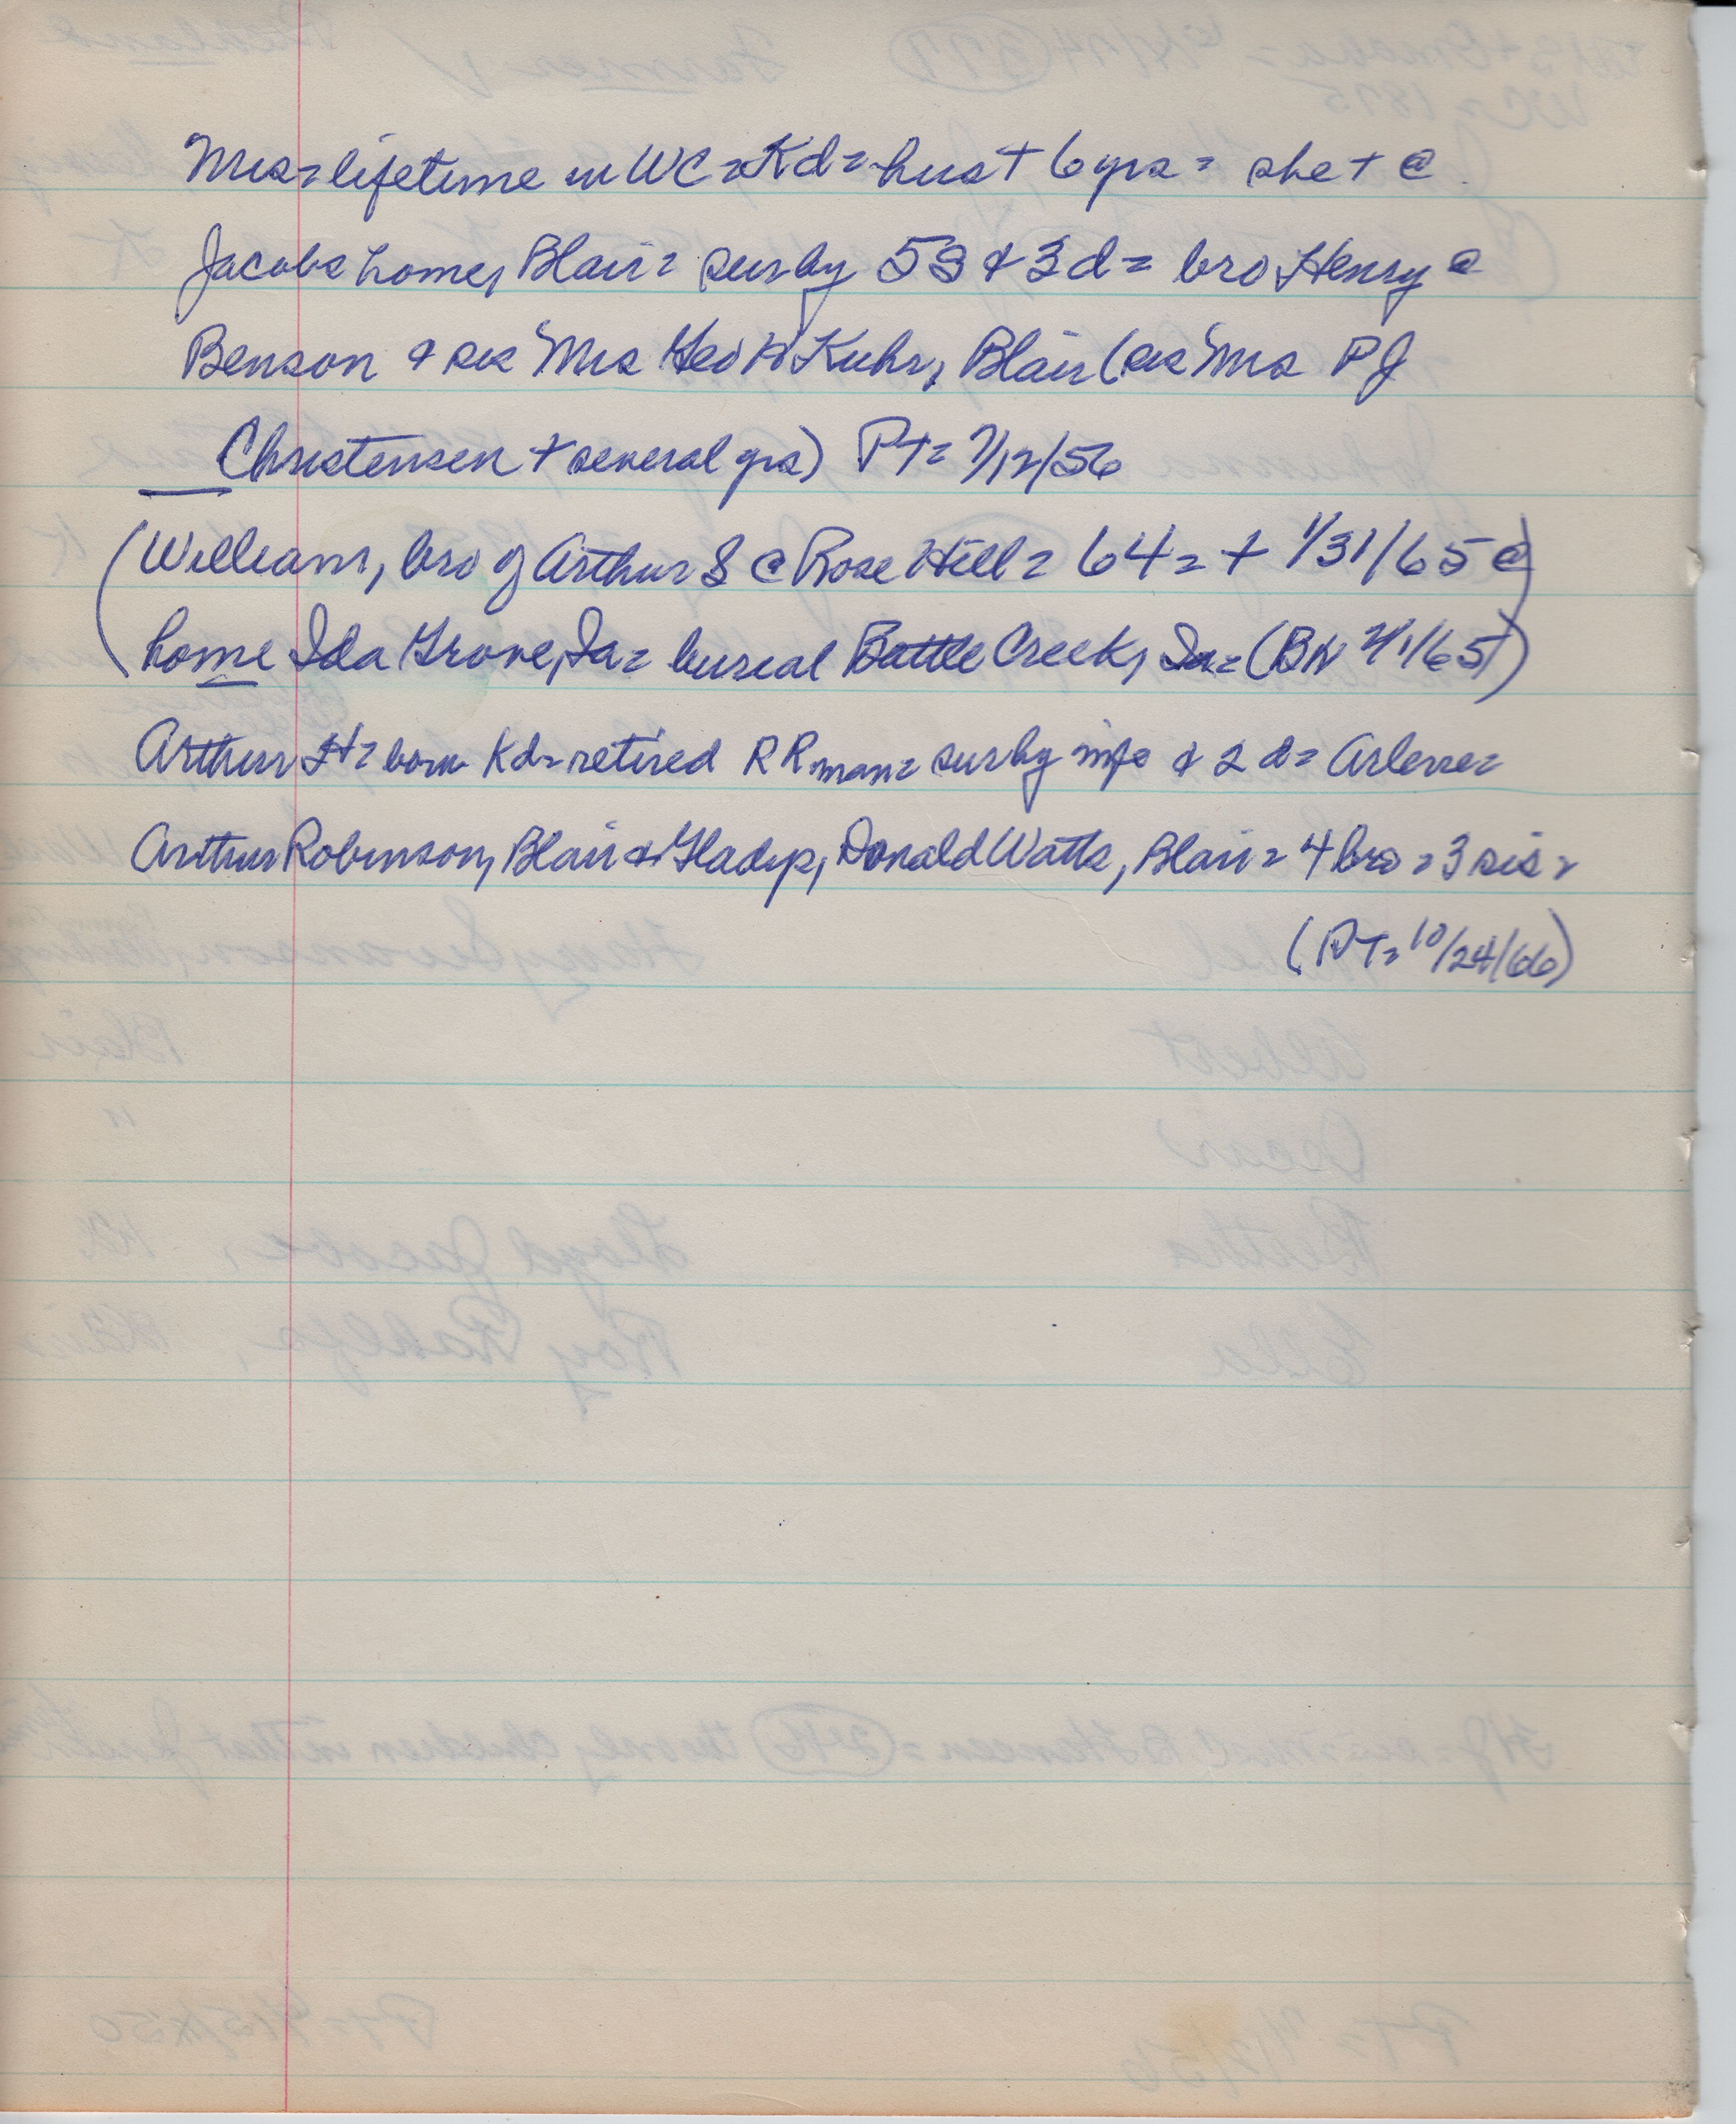 Mrs = lifetime in WC = Kd = hus + 6 yrs = she + @
Jacobs home, Blair = sur by 5 S & 3 d = bro Henry @
Benson & sis Mrs Geo H Kuhr, Blair (sis Mrs P J
Christensen + several grs) PT = 7/12/56
(William, bro of Arthur S @ Rose Hill = 64 = + 1/31/65 @
home Ida Grove, Ia = burial Battle Creek, Ia = (BN 2/1/65))
Arthur H = born Kd = retired RR man = sur by wife & 2 d = Arlene =
Arthur Robinson, Blair & Gladys, Donald Watts, Blair = 4 bro = 3 sis =
(PT = 10/24/66)